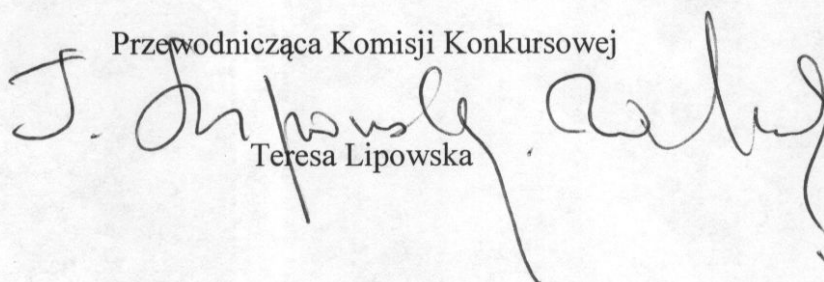 Przewodnicząca Komisji Konkursowej
T. Lipowska
Teresa Lipowska